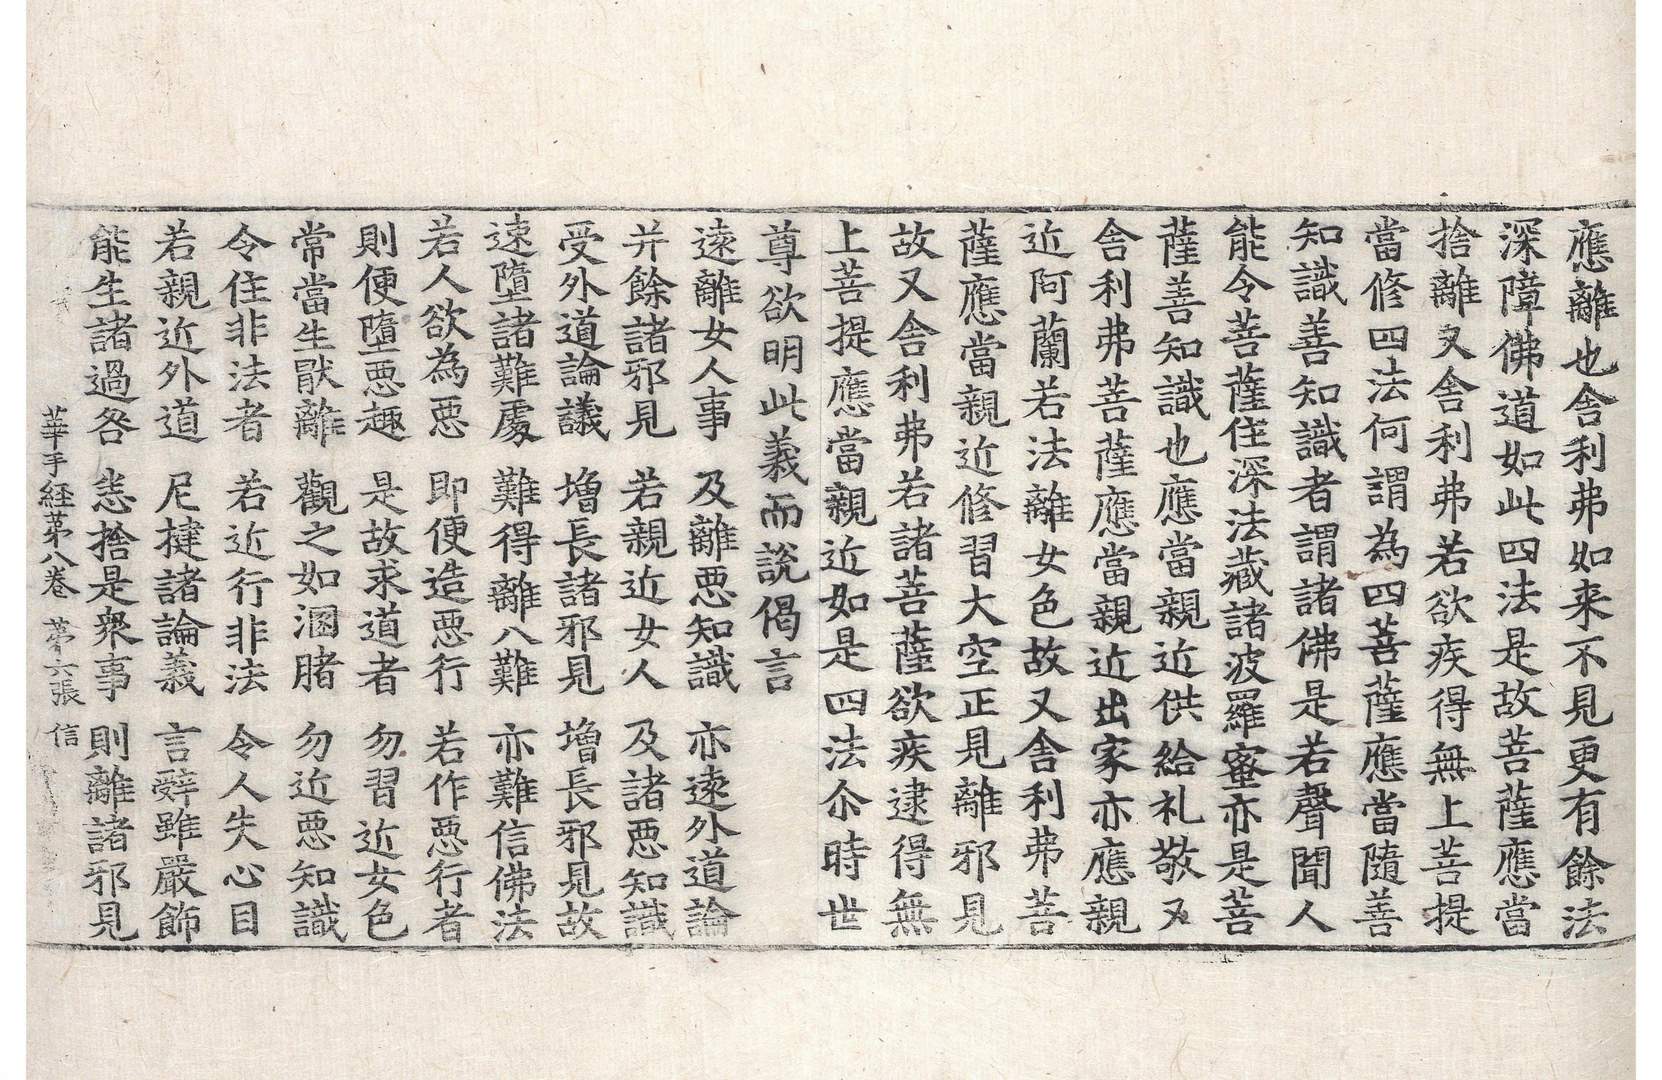 應離也舍利弗如来不見更有餘法
深障佛道如此四法是故菩薩應當
捨離又舍利弗若欲疾得無上菩提
當修四法何謂為四菩薩應當隨善
知識善知識者謂諸佛是若聲聞人
能令菩薩住深法藏諸波羅蜜亦是菩
薩善知識也應當親近供給礼敬又
舍利弗菩薩應當親近出家亦應親
近阿蘭若法離女色故又舍利弗菩
薩應當親近修習大空正見離邪見
故又舍利弗若諸菩薩欲疾逮得無
上菩提應當親近如是四法尒時世
尊欲明此義而說偈言
遠離女人事 及離惡知識 亦遠外道論
并餘諸邪見 若親近女人 及諸惡知識
受外道論議 增長諸邪見 增長邪見故
速墮諸難處 難得離八難 亦難信佛法
若人欲為惡 即便造惡行 若作惡行者
則便墮惡趣 是故求道者 勿習近女色
常當生猒離 觀之如溷賭 勿近惡知識
令住非法者 若近行非法 令人失心目
若親近外道 尼揵諸論義 言辝雖嚴飾
能生諸過咎 恙捨是衆事 則離諸邪見
華手経苐八卷 苐六張 信